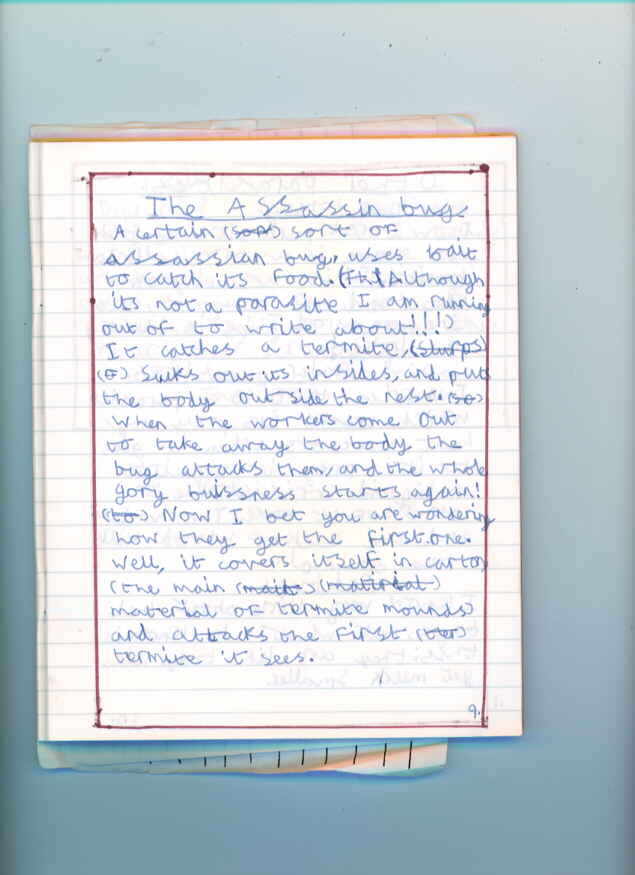 The Assassin bug.
A certain (sort) sort of
assassian bug, uses bait
to catch its food. (Th) (Although
its not a parasite I am running
out of to write about!!!)
It catches a termite, (slurps)
(E) Sucks out its insides, and puts
the body out side the nest. (so)
When the workers come out
to take away the body the
bug attacks them, and the whole
gory buissness starts again!
(to) Now I bet you are wondering
how they get the first one.
Well, it covers itself in carton
(the main (mait) (matirial)
material of termite mounds)
and attacks the first (ter)
termite it sees.
9.